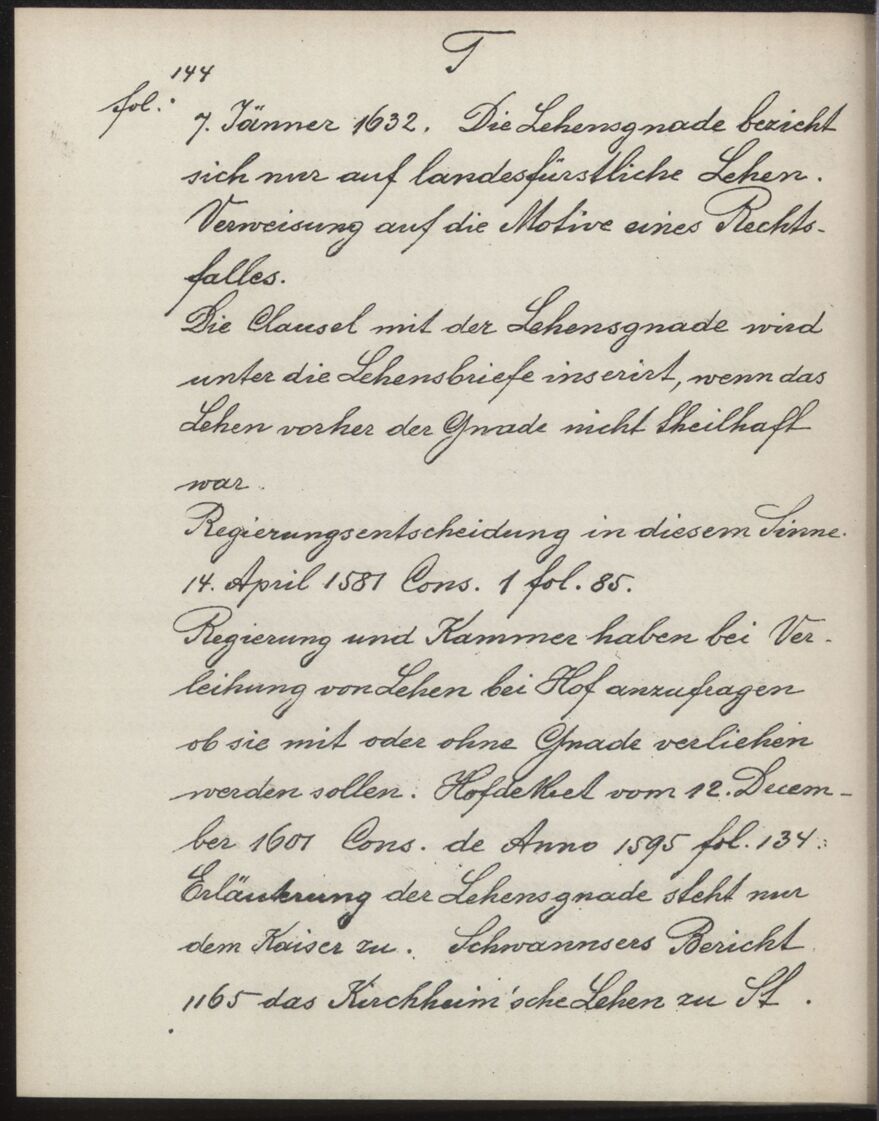 T
144
fol.
7. Jänner 1632. Die Lehensgnade bezieht
sich nur auf landesfürstliche Lehen.
Verweisung auf die Motive eines Rechts-
falles.
Die Clausel mit der Lehensgnade wird
unter die Lehensbriefe inserirt, wenn das
Lehen vorher der Gnade nicht theilhaft
war.
Regierungsentscheidung in diesem Sinne.
14. April 1581 Cons. 1 fol. 85.
Regierung und Kammer haben bei Ver-
leihung von Lehen bei Hof anzufragen
ob sie mit oder ohne Gnade verliehen
werden sollen. Hofdekret vom 12. Decem-
ber 1601 Cons. de Anno 1595 fol. 134.
Erläuterung der Lehensgnade steht nur
dem Kaiser zu. Schwannsers Bericht
1165 das Kirchheim'sche Lehen zu St.